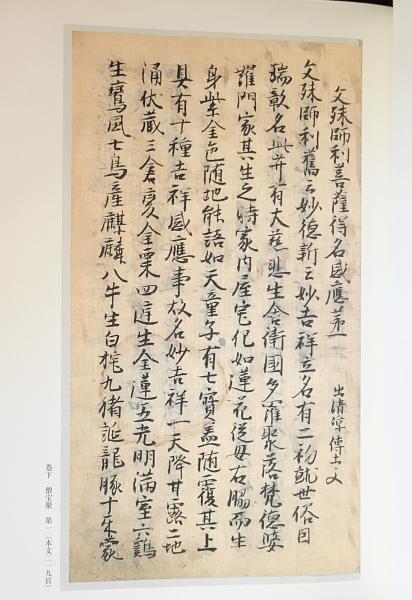 文殊師利菩薩得名感應第一 出清凉傳等文
文殊師利舊云妙德新云妙吉祥立名有二初就世俗因
瑞彰名此菩有大慈悲生舍衛國多羅聚落梵德婆
羅門家其生之時家內屋宅化如蓮花從母右脇而生
身紫金色随地能語如天童子有七寳盖随覆其上
具有十種吉祥感應事故名妙吉祥一天降甘露二地
涌伏蔵三倉變金粟四庭生金蓮五光明滿室六鷄
生鸞鳳七馬産麒麟八牛生白㹮九猪誕龍豚十朱蒙
巻下 僧宝聚 第一(本文二一九頁)